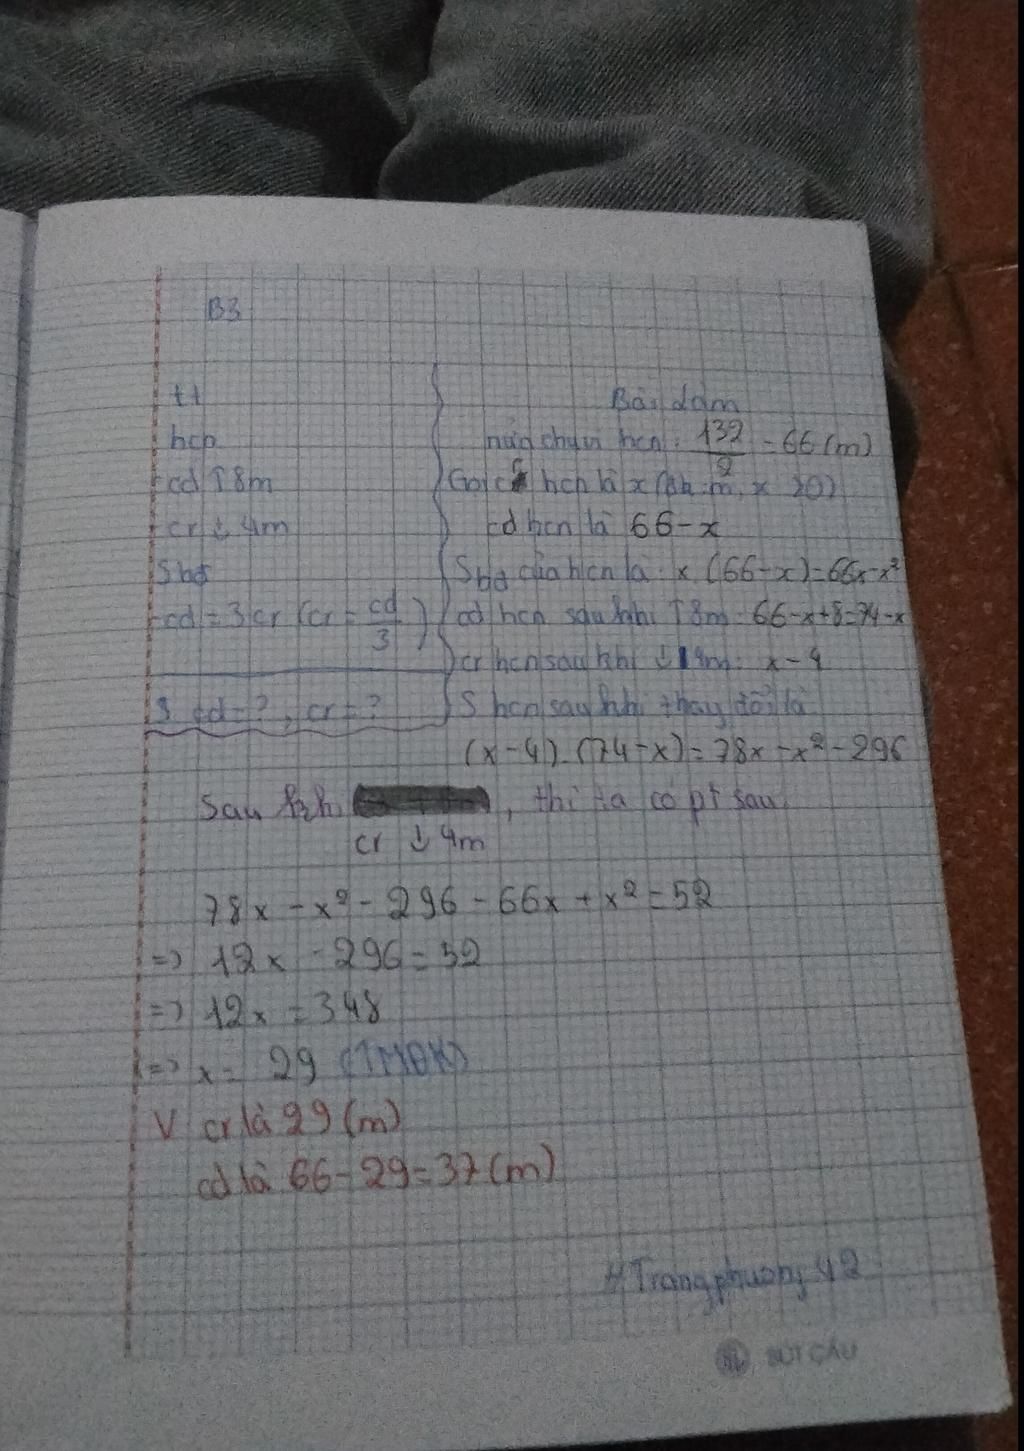 B3
tt
hcn
cd ↑8m
cr ↓ 4m
Sbđ
cd = 3cr (cr = cd/3)
cd = ?, cr = ?
Bài làm
nửa chu vi hcn: 132/2 = 66 (m)
Gọi hcn là x (đk: m, x > 0)
cd hcn là 66-x
Sbđ của hcn là: x (66-x)=66x-x²
cd hcn sau khi ↑8m: 66-x+8=74-x
cr hcn sau khi ↓ 4m: x-4
S hcn sau khi thay đổi là
(x-4).(74-x)=78x-x²-296
Sau khi , thì ta có pt sau
cr ↓ 4m
78x - x² - 296 - 66x + x² = 52
=> 12x - 296 = 52
=> 12x = 348
=> x = 29 (TMĐK)
V cr là 29 (m)
cd là 66-29=37 (m)
# Trangphuong 42
BÚT CÂU